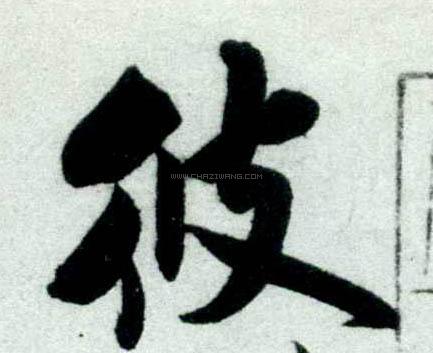 彼
WWW.CHAZIWANG.COM